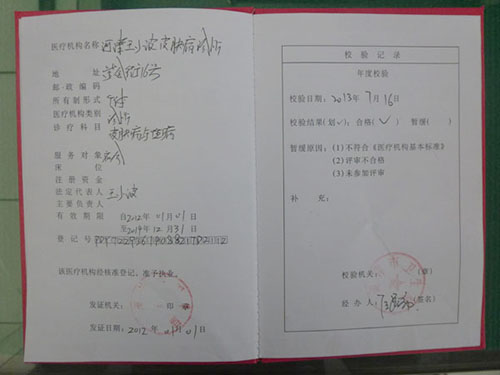 医疗机构名称 河津王小波皮肤病诊所
地 址
邮政编码
所有制形式 个体
医疗机构类别 诊所
诊疗科目 皮肤病与性病
服务对象 社会
床 位
注册资金
法定代表人 王小波
主要负责人
有效期限 自2012年01月01日
至2014年12月31日
登记号
该医疗机构经核准登记，准予执业。
发证机关：
发证日期：2012年01月01日
校验记录
年度校验
校验日期：2013年7月16日
校验结果(划√)：合格(√) 暂缓( )
暂缓原因：(1)不符合《医疗机构基本标准》
(2)评审不合格
(3)未参加评审
补 充：
校验机关： (章)
经办人： (签名)